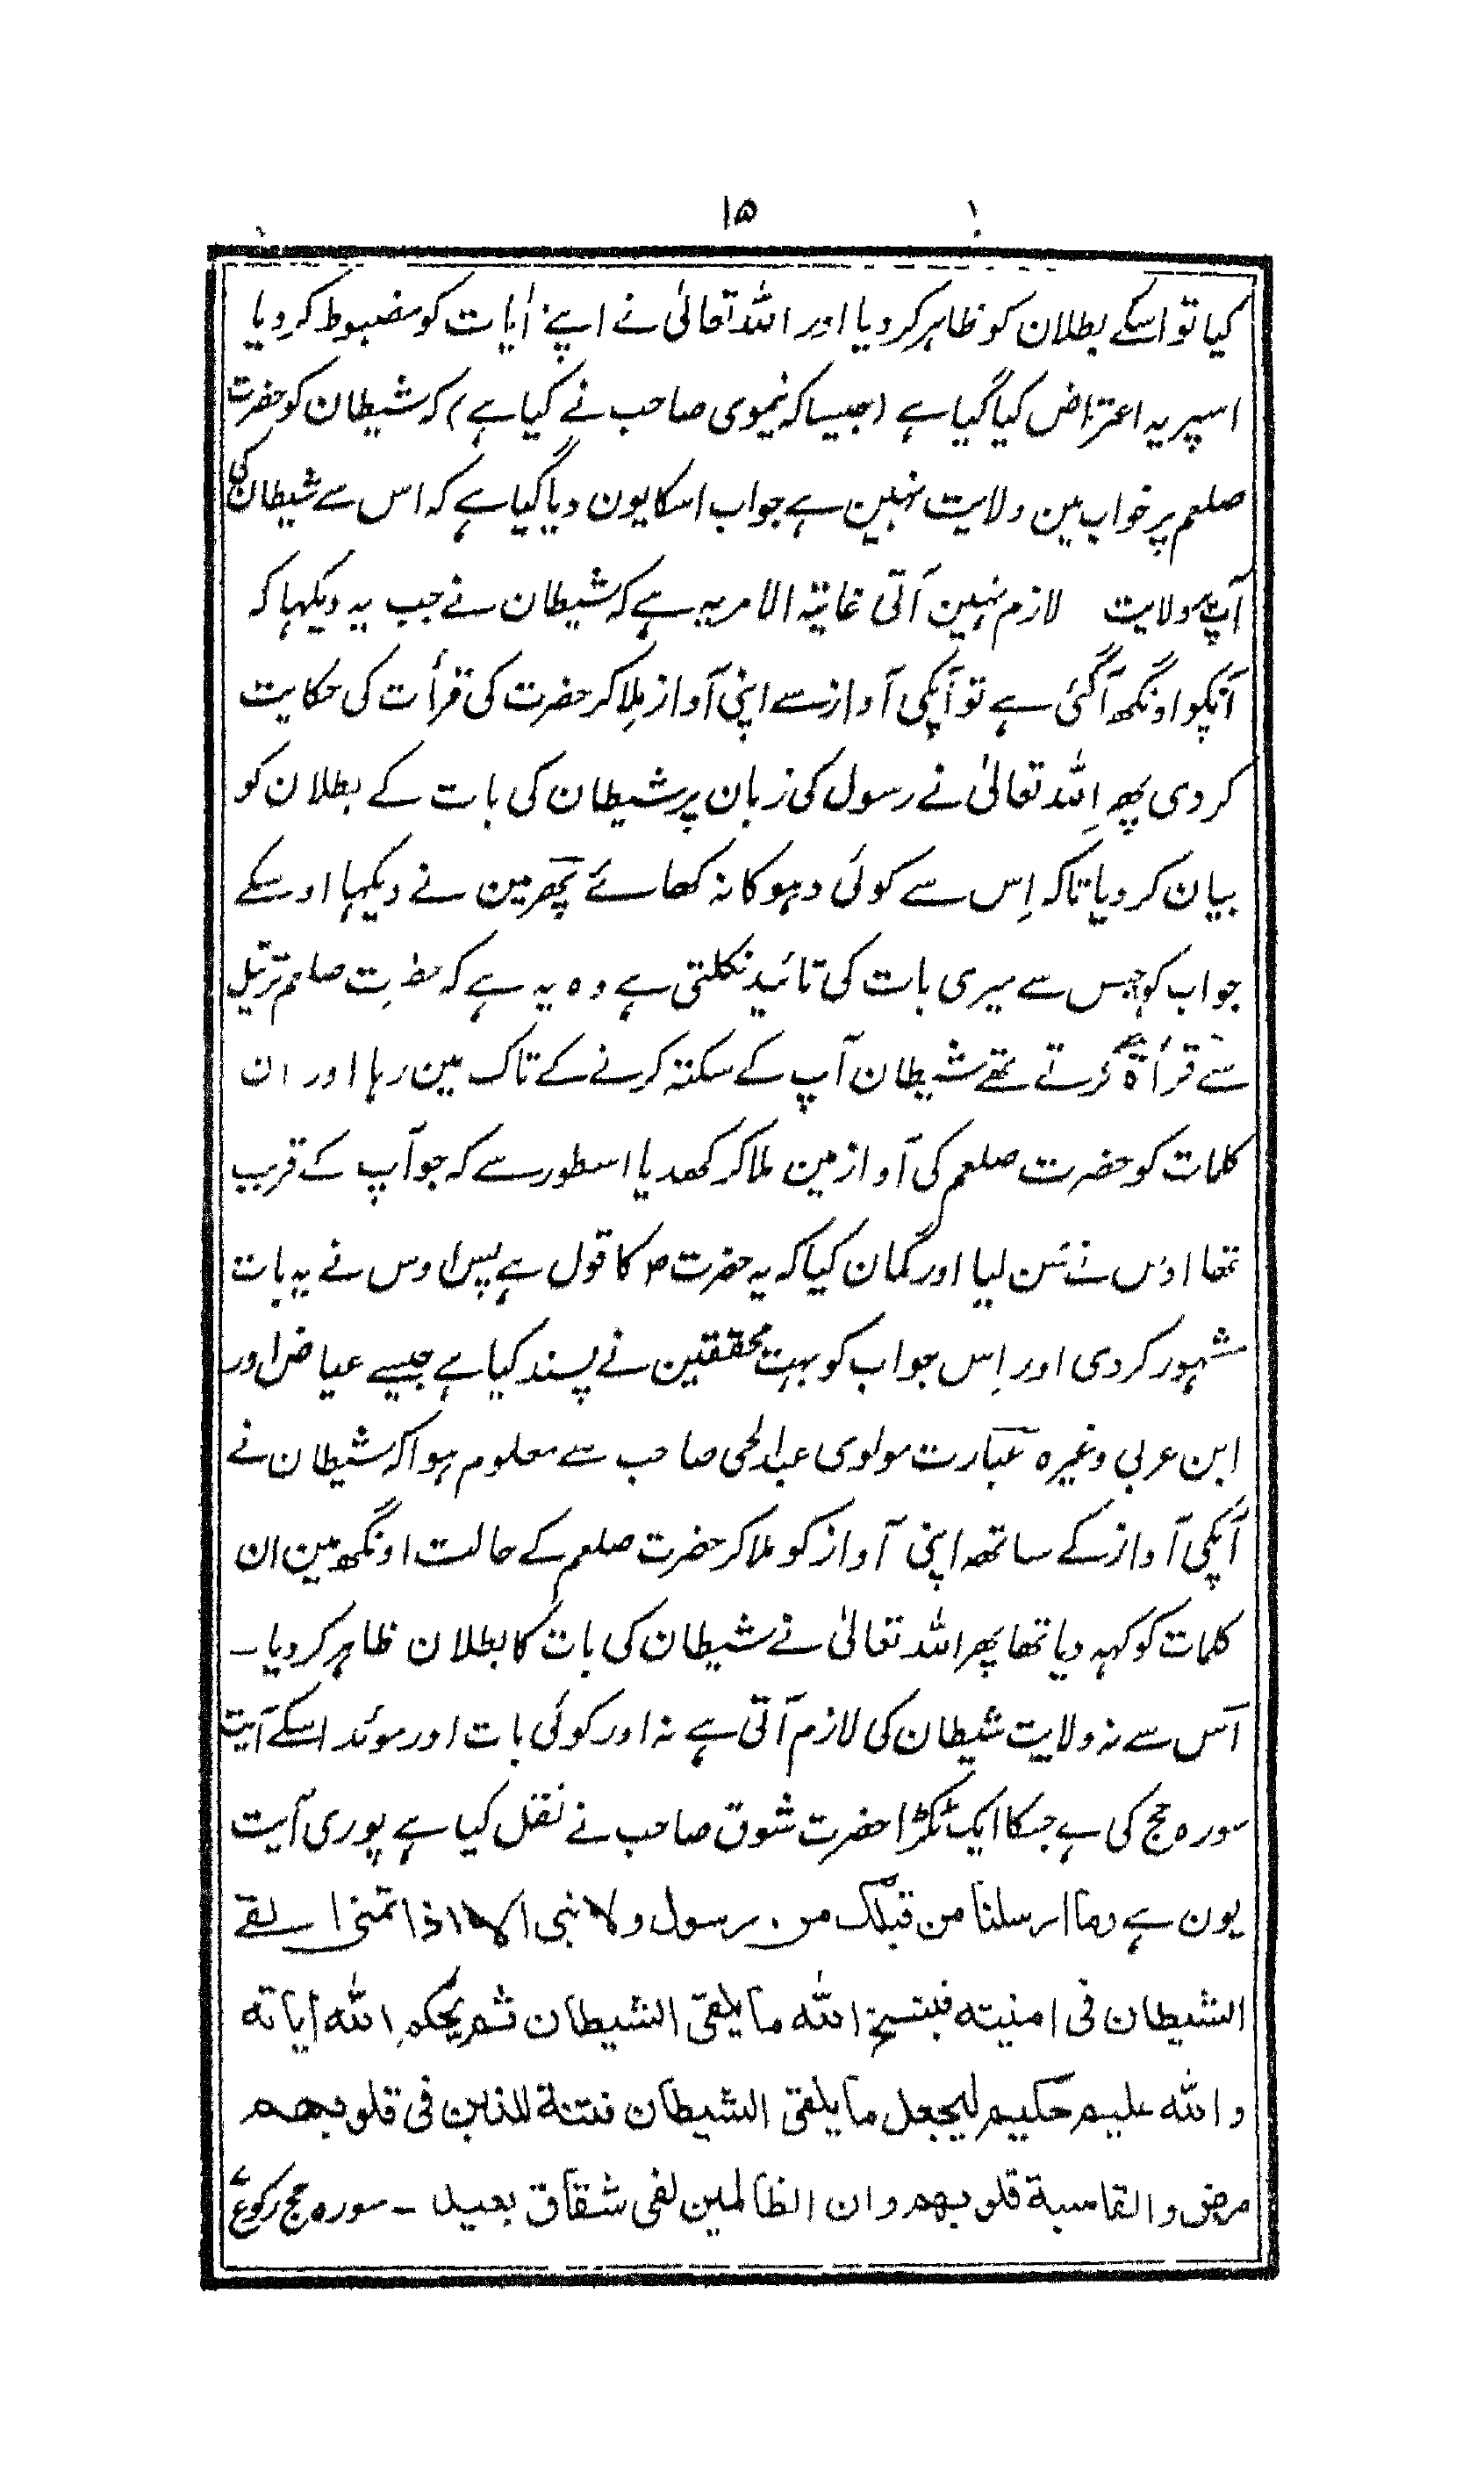 ۱۵
کیا تو اسکے بطلان کو ظاہر کردیا اور اللہ تعالیٰ نے اپنے آیات کو مضبوط کردیا
اسپر یہ اعتراض کیا گیا ہے (جیسا کہ نیموی صاحب نے کیا ہے) کہ شیطان کو حضرت
صلعم پر خواب مین ولایت نہین ہے جواب اسکا یون دیا گیا ہے کہ اس سے شیطان کی
آپ پر ولایت لازم نہین آتی غایتہ الامر یہ ہے کہ شیطان نے جب یہ دیکہا کہ
آنکو اونگھ آگئی ہے تو آپکی آواز سے اپنی آواز مِلا کر حضرت کی قرأت کی حکایت
کر دی پھر اللہ تعالیٰ نے رسول کی زبان پر شیطان کی بات کے بطلان کو
بیان کر دیا تاکہ اِس سے کوئی دہوکا نہ کھائے پھر مین نے دیکہا اوسکے
جواب کو جس سے میری بات کی تائید نکلتی ہے وہ یہ ہے کہ حضرت صلعم ترتیل
سے قرأۃ کرتے تھے شیطان آپ کے سکتہ کرنے کے تاک مین رہا اور ان
کلمات کو حضرت صلعم کی آواز مین ملا کر کھدیا اسطور سے کہ جو آپ کے قریب
تھا اوس نے سُن لیا اور گمان کیا کہ یہ حضرت ص کا قول ہے پس اوس نے یہ بات
مشہور کر دی اور اِس جواب کو بہت محققین نے پسند کیا ہے جیسے عیاض اور
ابن عربی وغیرہ عبارت مولوی عبدالحی صاحب سے معلوم ہوا کہ شیطان نے
آپکی آواز کے ساتھ اپنی آواز کو ملا کر حضرت صلعم کے حالت اونگھ مین ان
کلمات کو کہہ دیا تھا پھر اللہ تعالیٰ نے شیطان کی بات کا بطلان ظاہر کر دیا ۔
اس سے نہ ولایت شیطان کی لازم آتی ہے نہ اور کوئی بات اور موئد اسکے آیت
سورہ حج کی ہے جسکا ایک ٹکڑا حضرت شوق صاحب نے نقل کیا ہے پوری آیت
یون ہے وما ارسلنا من قبلک من رسول ولا نبی الا اذا تمنی القے
الشیطان فی امنیتہ فینسخ اللہ ما یلقی الشیطان ثم یحکم اللہ آیاتہ
واللہ علیم حکیم لیجعل ما یلقی الشیطان فتنۃ للذین فی قلوبھم
مرض والقاسیۃ قلوبھم وان الظالمین لفی شقاق بعید ۔ سورہ حج رکوع